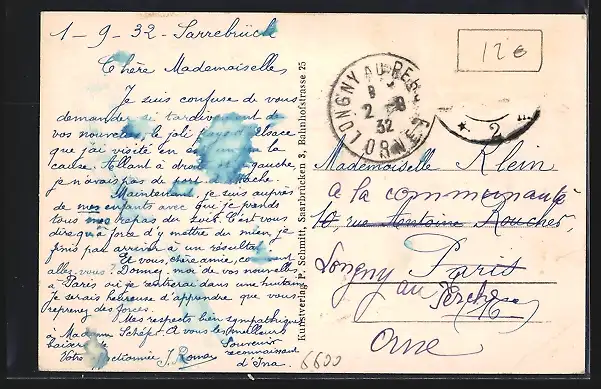 1-9-32 - Sarrebrück
Chère Mademoiselle
Je suis confuse de vous
demander si tardivement de
vos nouvelles, le joli pays d'Alsace
que j'ai visité en est la
cause. Allant à droite et à gauche,
je n'avais pas de port d'attache.
Maintenant je suis auprès
de mes enfants avec qui je prends
tous mes repas du soir. C'est vous
dire qu'à force d'y mettre du mien je
finis par arriver à un résultat.
Et vous, chère amie, comment
allez vous? Donnez-moi de vos nouvelles
à Paris où je rentrerai dans une huitaine
Je serais heureuse d'apprendre que vous
reprenez des forces.
Mes respects bien sympathiques
à Madame Schöpf. A vous les meilleurs
baisers de
Votre affectionnée J. Roman
Souvenir
reconnaissant
d'Ina.
Kunstverlag P. Schmitt, Saarbrücken 3, Bahnhofstrasse 25
LONGNY AU PERCHE
2 - 9
32
ORNE
12€
* 2
Mademoiselle Klein
à la communauté
10, rue Antoine Roucher,
Paris
Longny
au Perche
(16)
Orne
6600